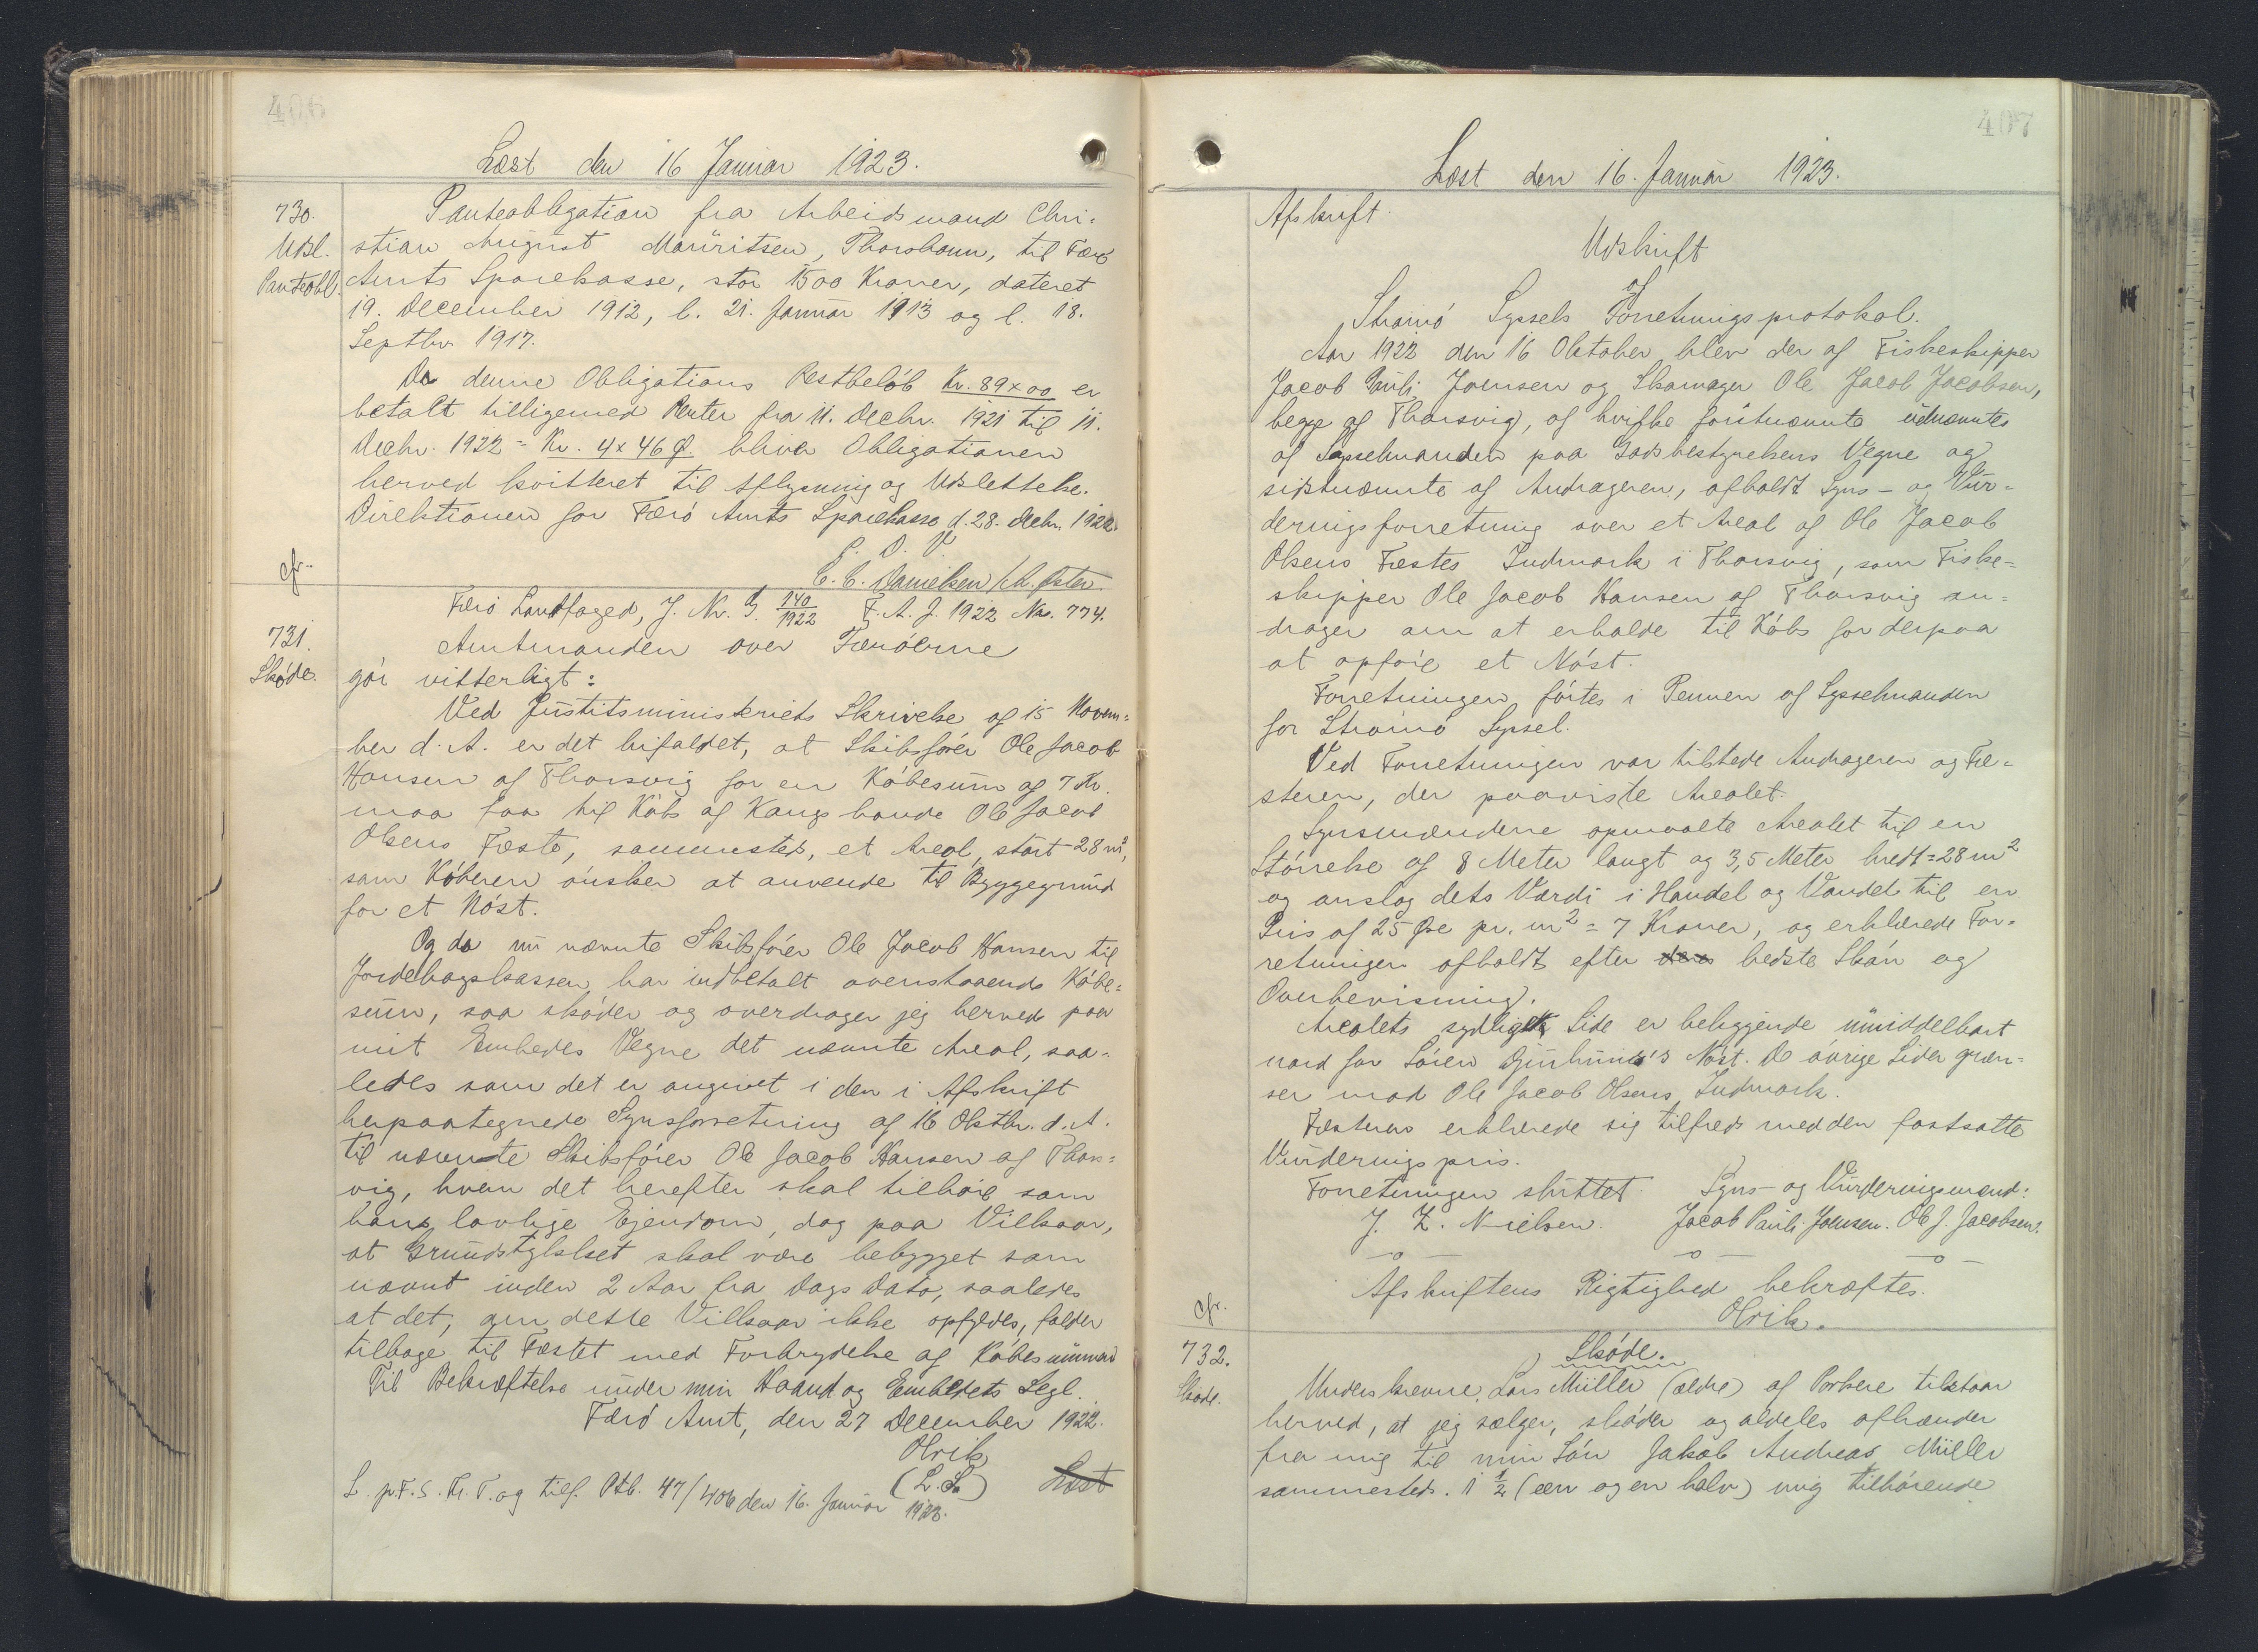 406
Læst den 16 Januar 1923.
730.
Udsl.
Panteobl.
Panteobligation fra Arbeidsmand Chri-
stian August Mauritsen, Thorshavn, til Færö
Amts Sparekasse, stor 1500 Kroner, dateret
19. December 1912, l. 21. Januar 1913 og l. 18.
Septbr. 1917.
Da denne Obligations Restbeløb Kr. 89x00 er
betalt tilligemed Renter fra 11. Decbr. 1921 til 11.
Decbr. 1922 = Kr. 4x46 Ø. bliver Obligationen
herved kvitteret til Aflysning og Udslettelse.
Direktionen for Færö Amts Sparekasse d. 28. Decbr. 1922.
P. D. V.
C. C. Danielsen / A. Øster.
cfr.
Færö Landfoged, J. Nr. G. 140/1922 F. A. J. 1922 No. 774.
731.
Skøde.
Amtmanden over Færöerne
gör vitterligt:
Ved Justitsministeriets Skrivelse af 15 Novem-
ber d. A. er det bifaldet, at Skibsförer Ole Jacob
Hansen af Thorsvig for en Köbesum af 7 Kr.
maa faa til Köbs af Kongsbonde Ole Jacob
Olsens Fæste, sammesteds, et Areal, stort 28 m²,
som Köberen önsker at anvende til Byggegrund
for et Nöst.
Og da nu nævnte Skibsförer Ole Jacob Hansen til
Jordebogskassen har indbetalt ovenstaaende Köbe-
sum, saa sköder og overdrager jeg herved paa
mit Embedes Vegne det nævnte Areal, saa-
ledes som det er angivet i den i Afskrift
herpaategnede Synsforretning af 16 Oktbr. d. A.
til nævnte Skibsförer Ole Jacob Hansen af Thors-
vig, hvem det herefter skal tilhöre som
hans lovlige Ejendom, dog paa Vilkaar,
at Grundstykket skal være bebygget som
nævnt inden 2 Aar fra Dags Dato, saaledes
at det, om dette Vilkaar ikke opfyldes, falder
tilbage til Fæstet med Forbrydelse af Köbesummen
Til Bekræftelse under min Haand og Embedets Segl.
Færö Amt, den 27 December 1922.
Olrik
(L. S.) Læst
L. p. F. S. Tr. T. og tilf. Ptb. 47/406 den 16. Januar 1923.
407
Læst den 16. Januar 1923.
Afskrift.
Udskrift
af
Strömö Syssels Forretningsprotokol.
Aar 1922 den 16 Oktober blev der af Fiskeskipper
Jacob Pauli Joensen og Skomager Ole Jacob Jacobsen,
begge af Thorsvig, af hvilke förstnævnte udnævntes
af Sysselmanden paa Godsbestyrelsens Vegne og
sidstnævnte af Andrageren, afholdt Syns- og Vur-
deringsforretning over et Areal af Ole Jacob
Olsens Fæstes Indmark i Thorsvig, som Fiske-
skipper Ole Jacob Hansen af Thorsvig an-
drager om at erholde til Köbs for derpaa
at opföre et Nöst.
Forretningen förtes i Pennen af Sysselmanden
for Strömö Syssel.
Ved Forretningen var tilstede Andrageren og Fæ-
steren, der paaviste Arealet.
Synsmændene opmaalte Arealet til en
Störrelse af 8 Meter langt og 3,5 Meter bredt = 28 m²
og anslog dets Værdi i Handel og Vandel til en
Pris af 25 Øre pr. m² = 7 Kroner, og erklærede For-
retningen afholdt efter deres bedste Skön og
Overbevisning.
Arealets sydligste Side er beliggende umiddelbart
nord for Sören Nöst. De övrige Sider græn-
ser mod Ole Jacob Olsens Indmark.
Fæsteren erklærede sig tilfreds med den fastsatte
Vurderingspris.
Forretningen sluttet. Syns- og Vurderingsmænd:
J. Z. Nielsen. Jacob Pauli Joensen. Ole J. Jacobsen.
Afskriftens Rigtighed bekræftes.
Olrik.
cfr.
732.
Skøde.
Sköde.
Underskrevne Lars Müller (ældre) af Porkere tilstaar
herved, at jeg sælger, sköder og aldeles afhænder
fra mig til min Sön Jakob Andreas Müller
sammesteds. 1 1/2 (een og en halv) mig tilhörende